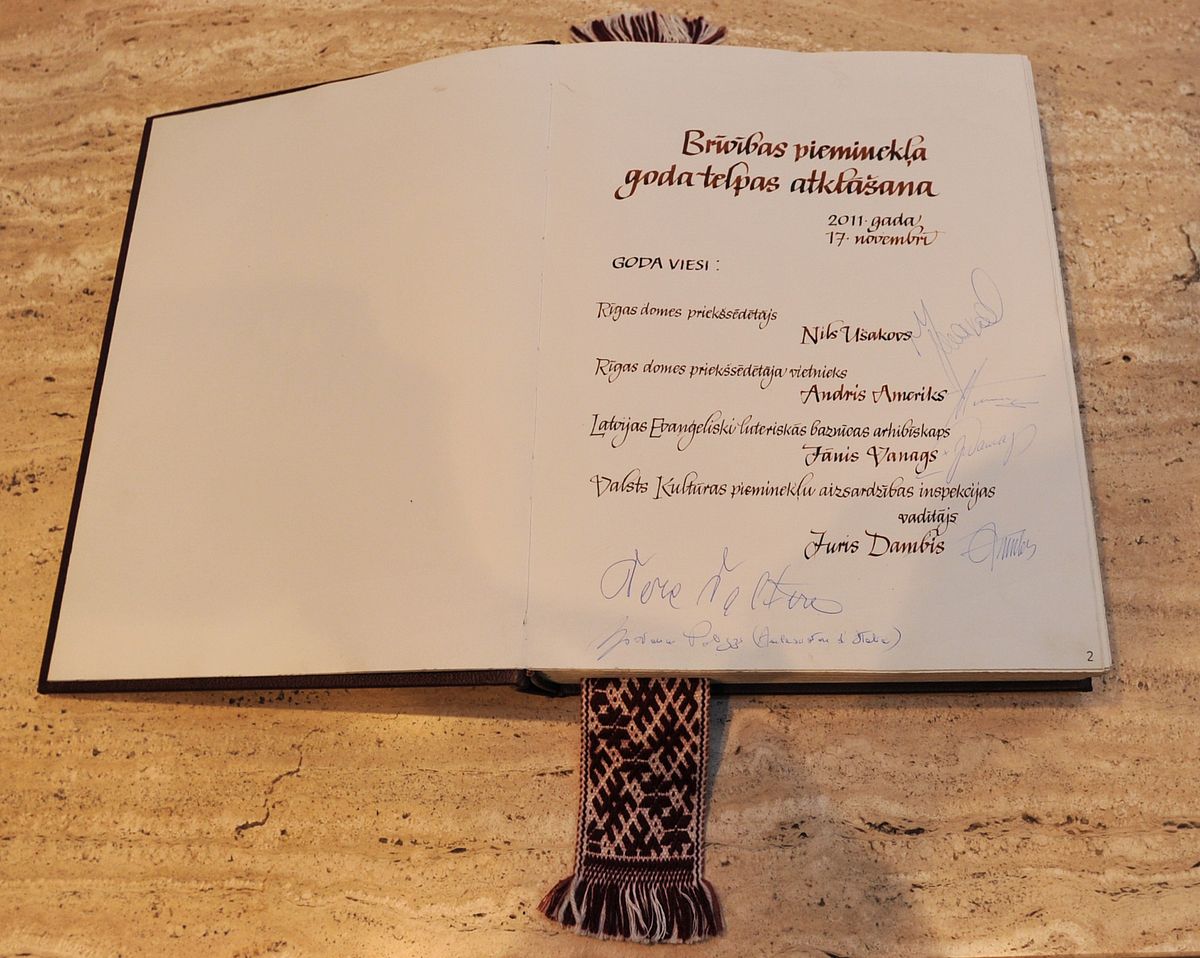 Brīvības pieminekļa
goda telpas atklāšana
2011. gada,
17. novembrī
GODA VIESI :
Rīgas domes priekšsēdētājs
Nils Ušakovs
Rīgas domes priekšsēdētāja vietnieks
Andris Ameriks
Latvijas Evaņģeliski luteriskās baznīcas arhibīskaps
Jānis Vanags
Valsts Kultūras pieminekļu aizsardzības inspekcijas
vadītājs
Juris Dambis
2